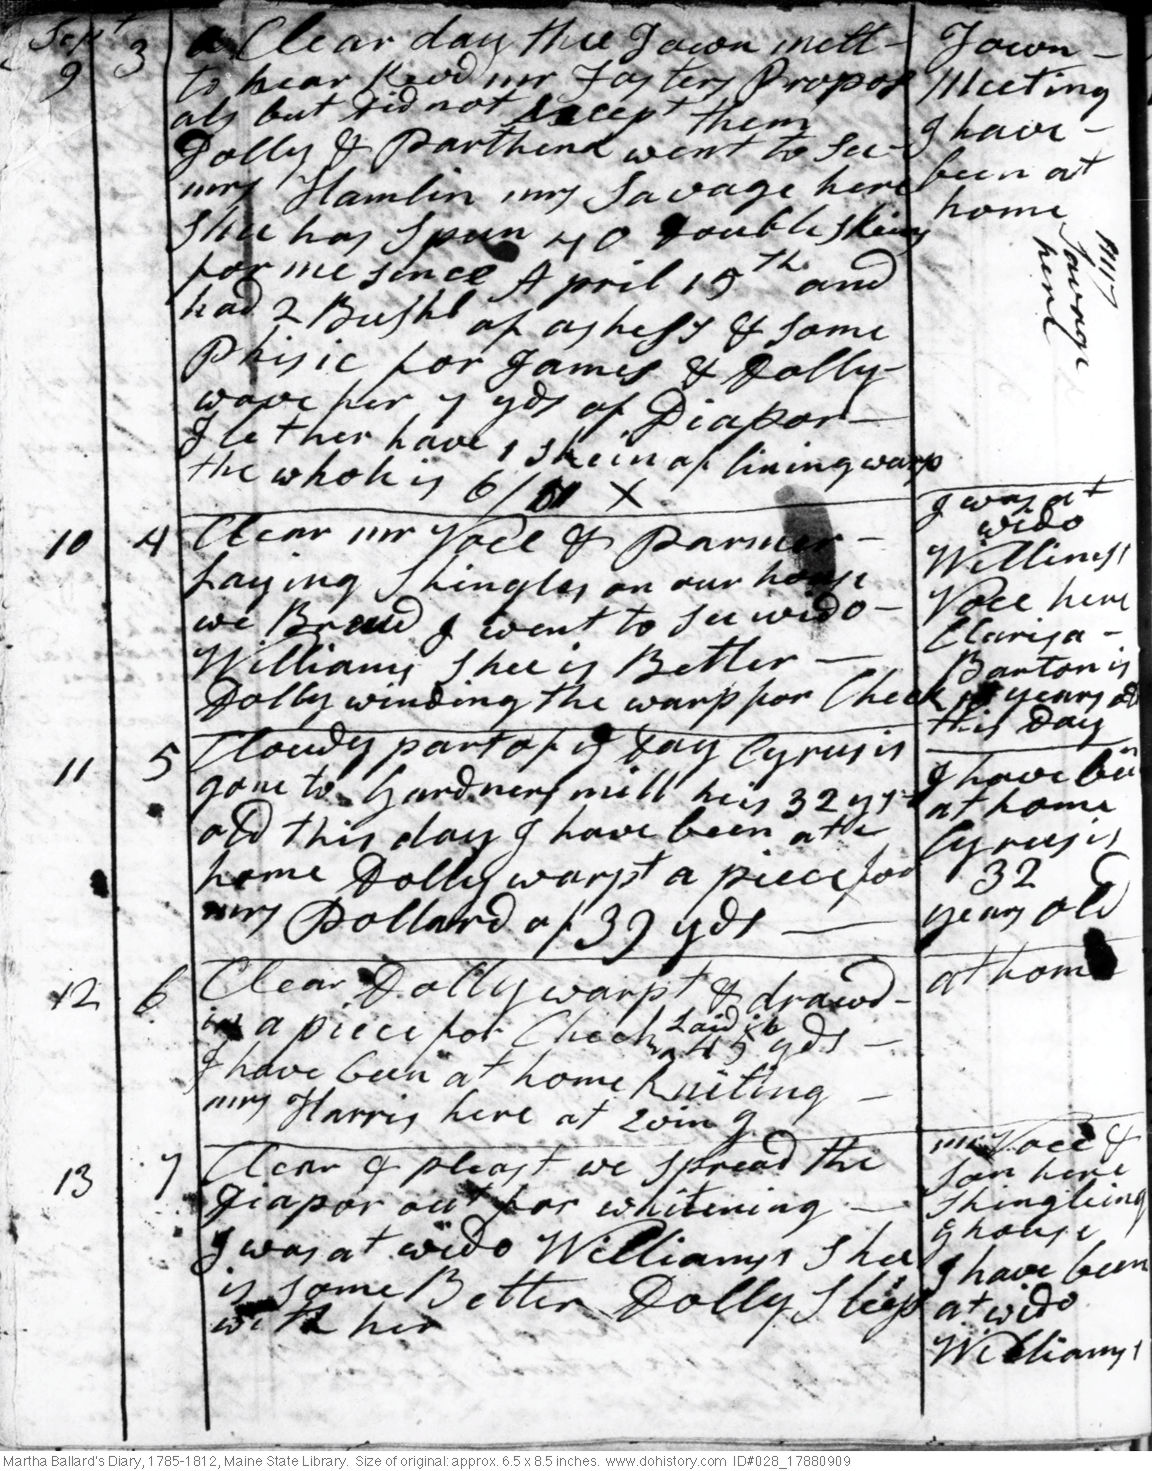 Sept
9 3 a Clear day thee Town mett -
to hear Revd mr Fosters Propos
als but did not accept them
Dolly & Parthena went to see -
mrs Hamlin mrs Savage here
shee has Spun 40 double skins
for me since April 15th and
had 2 Bushl of ashess & some
Phisic for James & Dolly -
wove her 7 yds of Diapor -
I let her have 1 skein of lining warp
the whole is 6/ X
Town -
Meeting
I have -
been at
home
mrs
Savage
here
10 4 Clear mr Voce & Parmer -
Laying Shingles on our house
we Brewd I went to see wido -
Williams shee is Better -
Dolly winding the warp for Check
I was at
wido
Williamss
Voce here
Clarisa -
Barton is
years old
this Day
11 5 Cloudy part of ye day Cyrus is
gone to Gardners mill he is 32 yrs
old this day I have been at
home Dolly warpt a piece for
mrs Pollard of 39 yds -
I have been
at home
Cyrus is
32
years old
12 6 Clear Dolly warpt & drawd -
in a piece for Check Laid in
45 yds -
I have been at home kniting -
mrs Harris here at Evin g
at home
13 7 Clear & pleast we spread the
Diapor out for whitening -
I was at wido Williamss shee
is some Better Dolly Sleeps
with her
mr Voce &
son here
shingleing
ye house
I have been
at wido
Williamss
Martha Ballard's Diary, 1785-1812, Maine State Library. Size of original: approx. 6.5 x 8.5 inches. www.dohistory.com ID#028_17880909